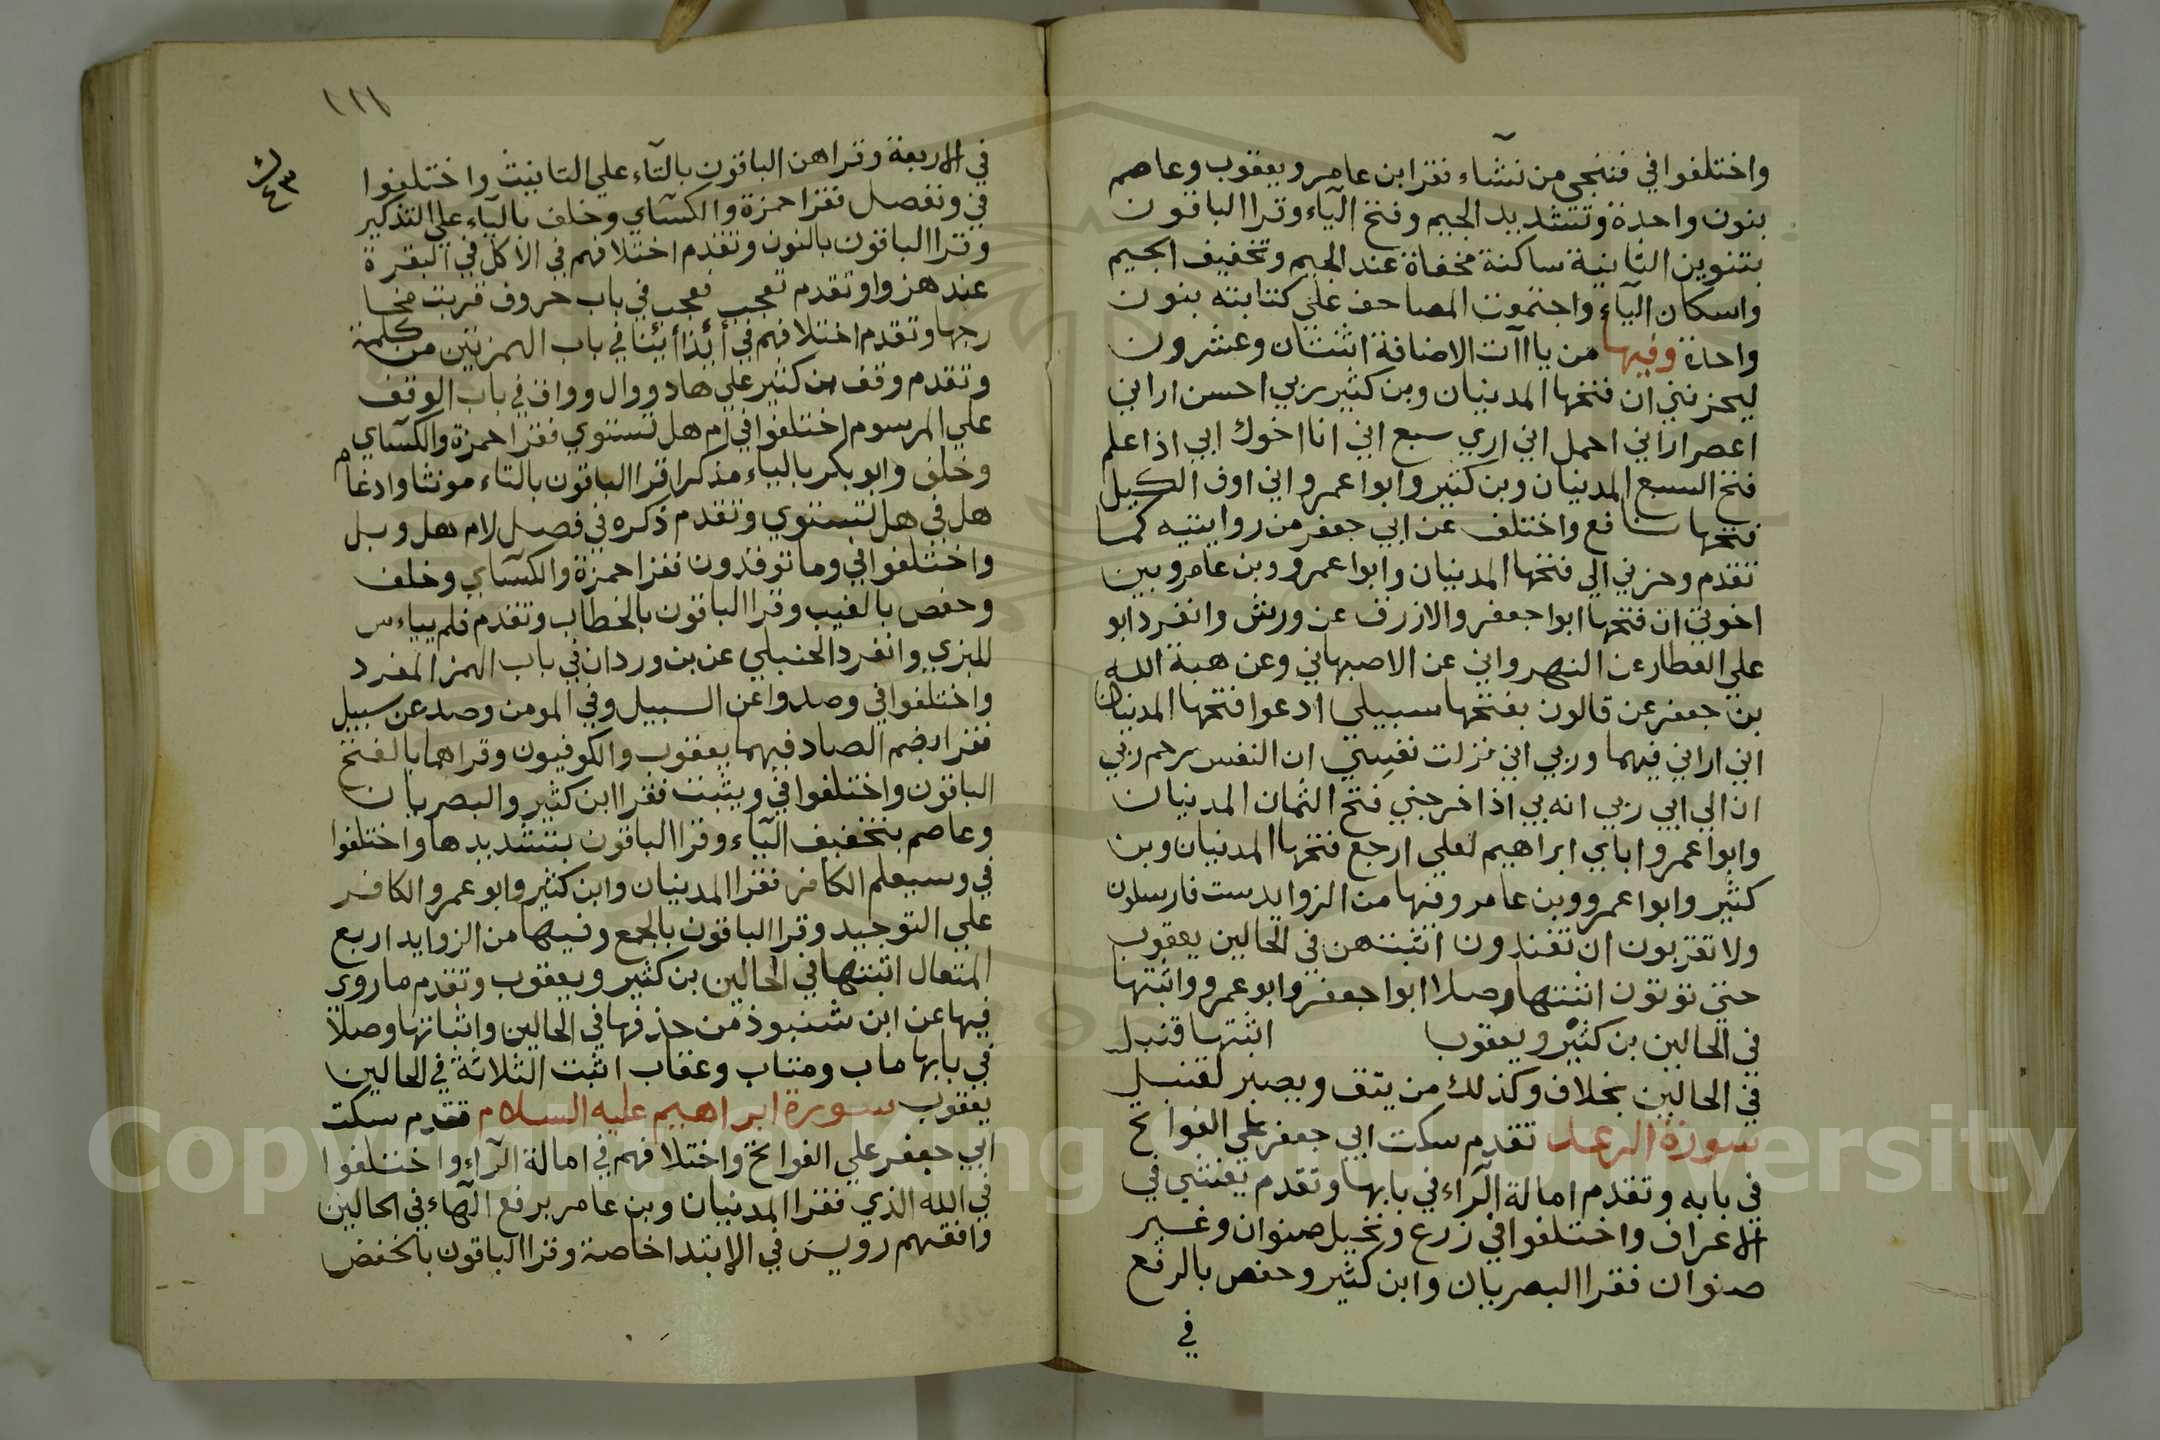 واختلفوا في فننجي من نشاء فقرا ابن عامر ويعقوب وعاصم
بنون واحدة وتشديد الجيم وفتح الياء وقرا الباقون
بتنوين الثانية ساكنة مخفاة عند الجيم وتخفيف الجيم
واسكان الياء واجتمعت المصاحف علي كتابته بنون
واحدة وفيها من ياآت الاضافة اثنتان وعشرون
ليحزنني ان فتحها المدنيان وبن كثير ربي احسن اراني
اعصر اراني احمل اني اري سبع اني انا اخوك ابي اذا علم
فتح السبع المدنيان وبن كثير وابوا عمرو اني اوف الكيل
فتحها نافع واختلف عن ابي جعفر من روايتيه كما
تقدم وحزني الي فتحها المدنيان وابوا عمرو وبن عامر وبين
اخوتي ان فتحها ابوا جعفر والازرق عن ورش وانفرد ابو
علي العطار عن النهرواني عن الاصبهاني وعن هبة الله
بن جعفر عن قالون بفتحها سبيلي ادعوا فتحها المدنيان
اني اراني فيهما وربي اني تركت نفسي ان النفس رحم ربي
ان لي ابي ربي انه بي اذا خرجني فتح الثمان المدنيان
وابوا عمرو اباي ابراهيم لعلي ارجع فتحها المدنيان وبن
كثير وابوا عمرو وبن عامر وفيها من الزوايد ست فارسلون
ولا تقربون ان تفندون اثبتهن في الحالين يعقوب
حتي توتون اثبتها وصلا ابوا جعفر وابو عمرو واثبتها
في الحالين بن كثير ويعقوب اثبتها قنبل
في الحالين بخلاف وكذلك من يتق ويصبر لقنبل
سورة الرعد تقدم سكت ابي جعفر علي الفواتح
في بابه وتقدم امالة الراء في بابها وتقدم يغشي في
الاعراف واختلفوا في زرع ونخيل صنوان وغير
صنوان فقرا البصريان وابن كثير وحفص بالرفع
في
١١٧
في الاربعة وقراهن الباقون بالتاء علي التانيث واختلفوا
في ونفصل فقرا حمزة والكسآي وخلف بالياء علي التذكير
وقرا الباقون بالنون وتقدم اختلافهم في الاكل في البقرة
عند هزوا وتقدم تعجب فعجب في باب حروف قربت مخا
رجها وتقدم اختلافهم في أئذا أئنا في باب الهمزتين من كلمة
وتقدم وقف بن كثير علي هاد ووال وواق في باب الوقف
علي المرسوم اختلفوا في ام هل تستوي فقرا حمزة والكسآي
وخلف وابو بكر بالياء مذكرا قرا الباقون بالتاء مونثا وادغام
هل في هل تستوي وتقدم ذكره في فصل لام هل وبل
واختلفوا في وما توقدون فقرا حمزة والكسآي وخلف
وحفص بالغيب وقرا الباقون بالخطاب وتقدم فلم يياءس
للبزي وانفرد الحنبلي عن بن وردان في باب الهمز المفرد
واختلفوا في وصدوا عن السبيل وفي المومن وصد عن سبيل
فقرا بضم الصاد فيهما يعقوب والكوفيون وقراهما بالفتح
الباقون واختلفوا في ويثبت فقرا ابن كثير والبصريان
وعاصم بتخفيف الياء وقرا الباقون بتشديدها واختلفوا
في وسيعلم الكافر فقرا المدنيان وابن كثير وابو عمرو الكافر
علي التوحيد وقرا الباقون بالجمع وفيها من الزوايد اربع
المتعال اثبتها في الحالين بن كثير ويعقوب وتقدم ما روي
فيها عن ابن شنبوذ من حذفها في الحالين واثباتها وصلا
في بابها ماب ومتاب وعقاب اثبت الثلاثة في الحالين
يعقوب سورة ابراهيم عليه السلام تقدم سكت
ابي جعفر علي الفواتح واختلافهم في امالة الراء واختلفوا
في الله الذي فقرا المدنيان وبن عامر برفع الهاء في الحالين
وافقهم رويس في الابتدا خاصة وقرا الباقون بالخفض
Copyright © King Saud University